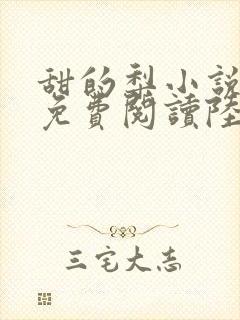 甜的梨小說
免費閱讀陸
三宅大志